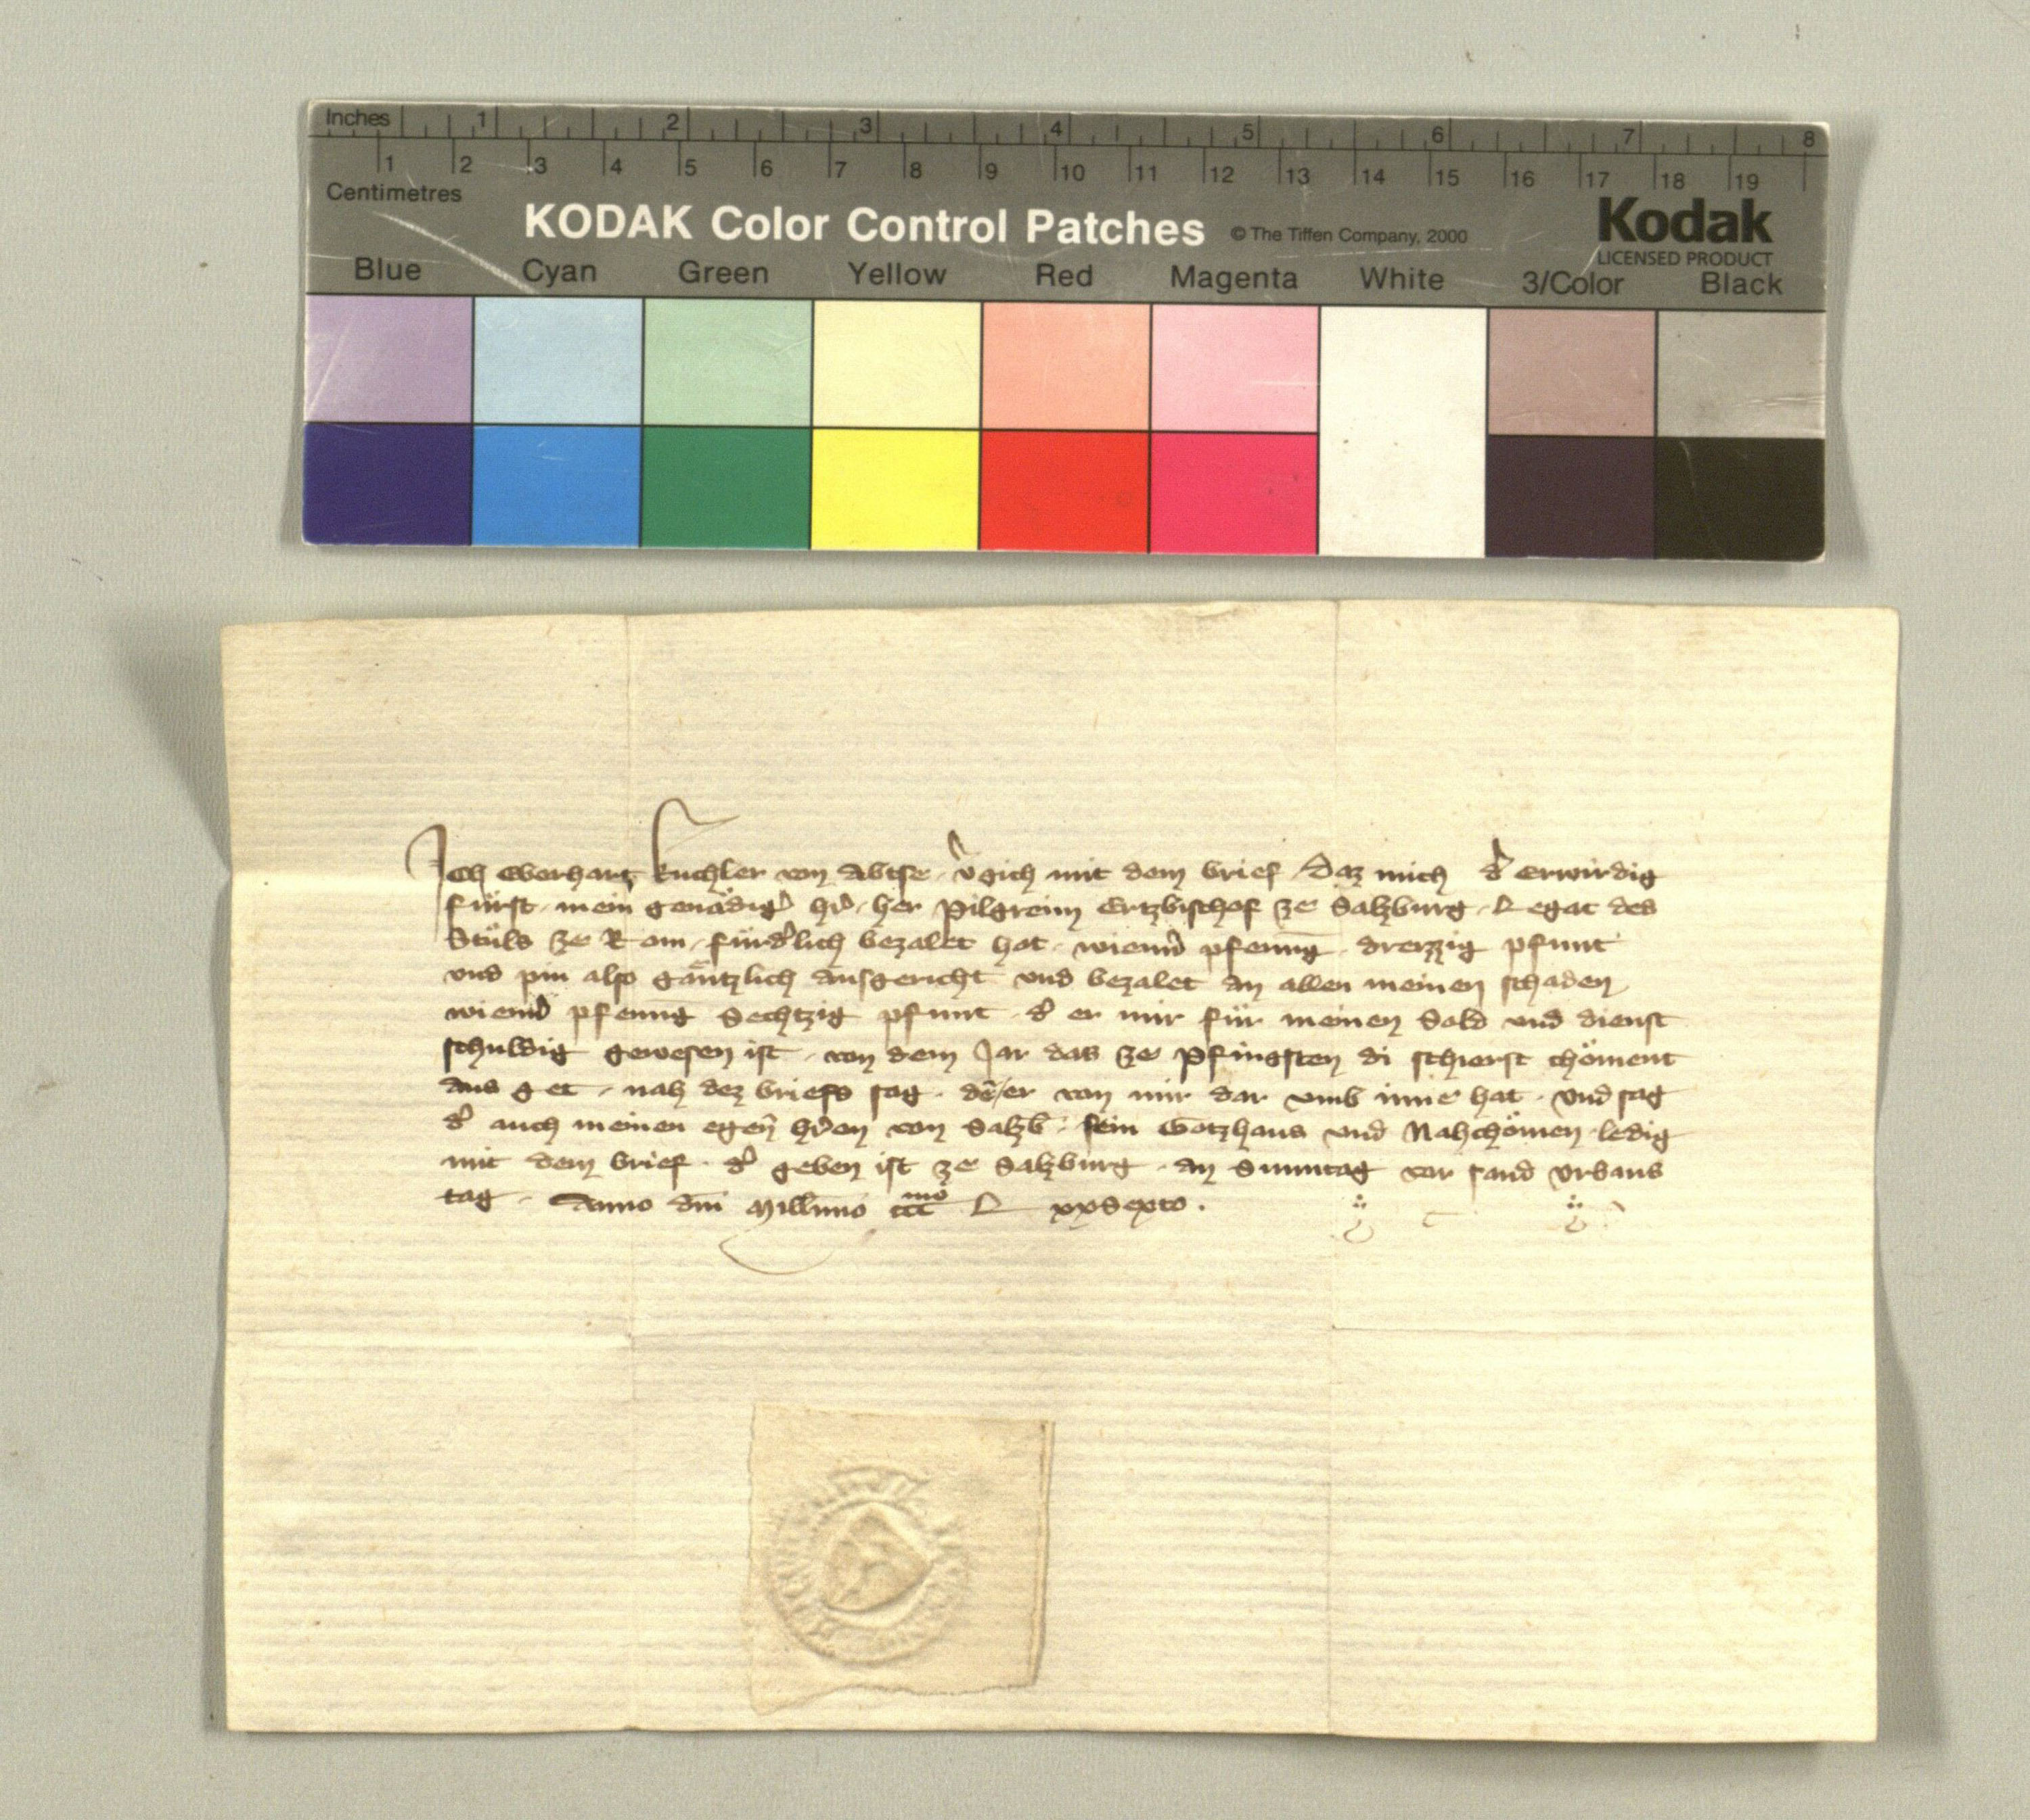 Inches 1 2 3 4 5 6 7 8
1 2 3 4 5 6 7 8 9 10 11 12 13 14 15 16 17 18 19
Centimetres
KODAK Color Control Patches © The Tiffen Company, 2000 Kodak
LICENSED PRODUCT
Blue Cyan Green Yellow Red Magenta White 3/Color Black
Ich Eberhart Kuchler von Abtse · v͛gich mit dem brief · Daz mich d͛ erwirdig
fürst · mein genädig͛ h͛r · her Pilgreim Ertzbischof ze Salzburg · Legat des
Stuls ze Rom · fürd͛lich bezalet hat · wienn͛ pfenīg · dreyzzig pfunt
und pin also gäntzlich ausgericht und bezalet an allen meinen schaden
wienn͛ pfenīg Sechtzig pfunt · d͛ er mir für meinen Sold und dienst
schuldig gewesen ist · von dem Jar das ze Pfingsten di schierst chöment
aus get · nah dez briefs sag · dē er von mir dar umb inne hat · Und sag
d͛ auch meinen egen̄ h͛ren von Salzb̄ · sein Gotzhaus und Nahchömen ledig
mit dem brief · d͛ geben ist ze Salzburg · an Sunntag vor sand Urbans
tag · Anno dn̄i Mill̄mo ccc͏ͫͦ L xxsexto ·